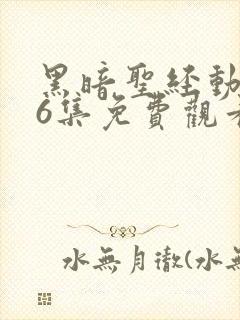 黑暗聖経動
6集免費觀看
水無月徹(水無